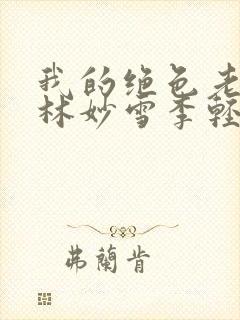 我的绝色老
林妙雪季轻
弗蘭肯